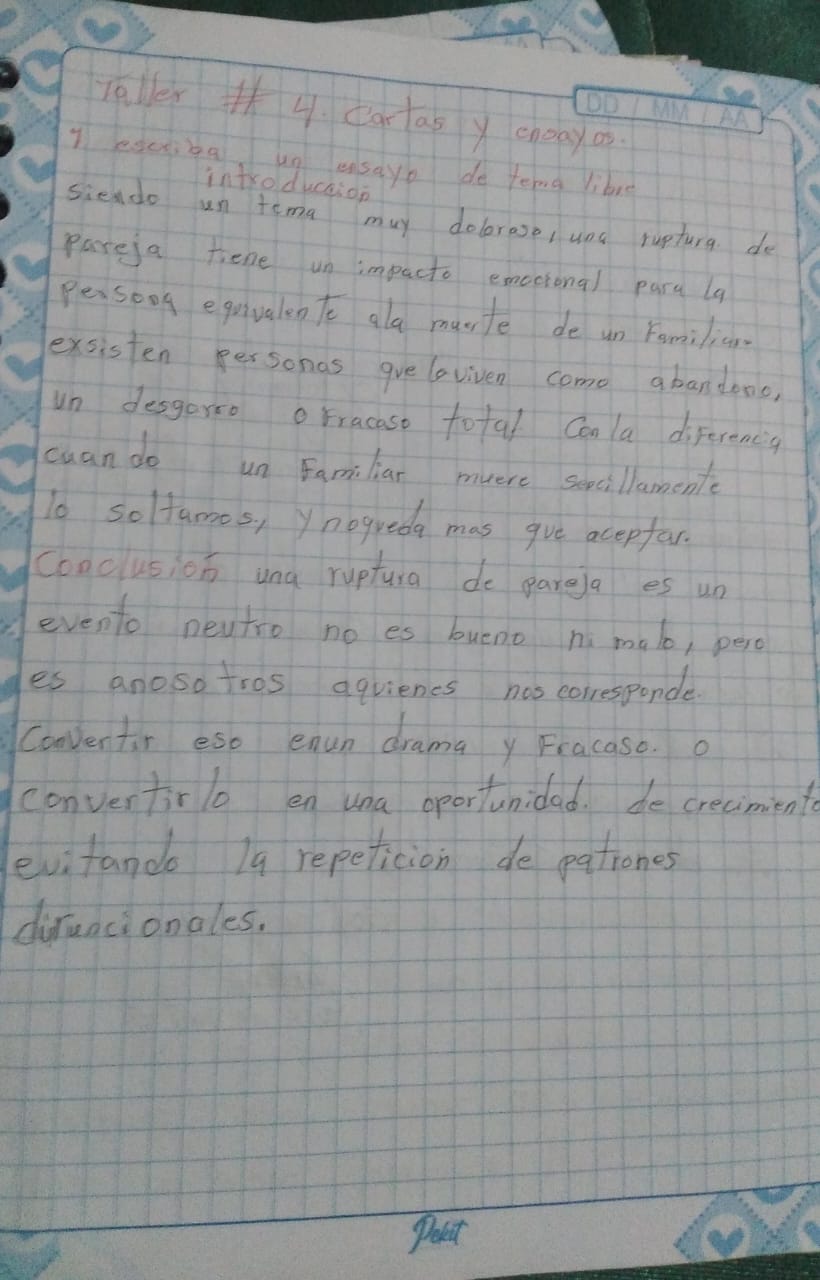 DD / MM / AA
Taller # 4. Cartas y ensayos.
1 escriba un ensayo de tema libre
introducción
siendo un tema muy doloroso, una ruptura de
pareja tiene un impacto emocional para la
persona equivalente ala muerte de un Familiar
exsisten personas que lo viven como abandono,
un desgarro o Fracaso total Con la diferencia
cuando un Familiar muere sencillamente
lo soltamos, y noqueda mas que aceptar.
Conclusión una ruptura de pareja es un
evento neutro no es bueno ni malo, pero
es anosotros aquienes nos corresponde.
Convertir eso enun drama y Fracaso. o
convertirlo en una oportunidad. de crecimiento
evitando la repeticion de patrones
difuncionales.
Pekit